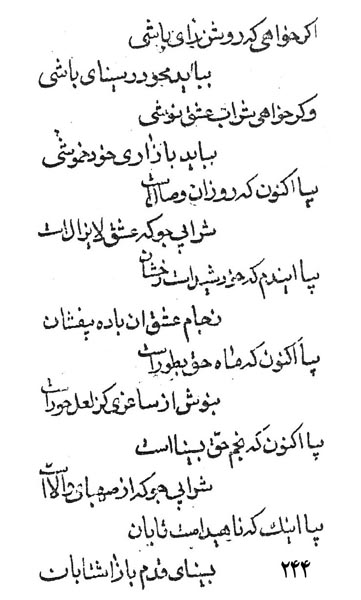 اکر خواهی که روشن رای باشی
بباید محو در سینای باشی
وکر خواهی شراب عشق نوشی
بباید با زاری خود خموشی
بیا اکنون که روز ان وصال است
شرابی جو که عشق لا یزال است
بیا ایندم که خورشید است رخشان
ز جام عشق ان باده بیفشان
بیا اکنون که ماه حق بطور است
بنوش از ساغری کز لعل حور است
بیا اکنون که نجم حق بینا است
شرابی جو که از صهبای والا است
بیا اینک که ناهید است تابان
بینای قدم باز اشتابان
۲۴۴